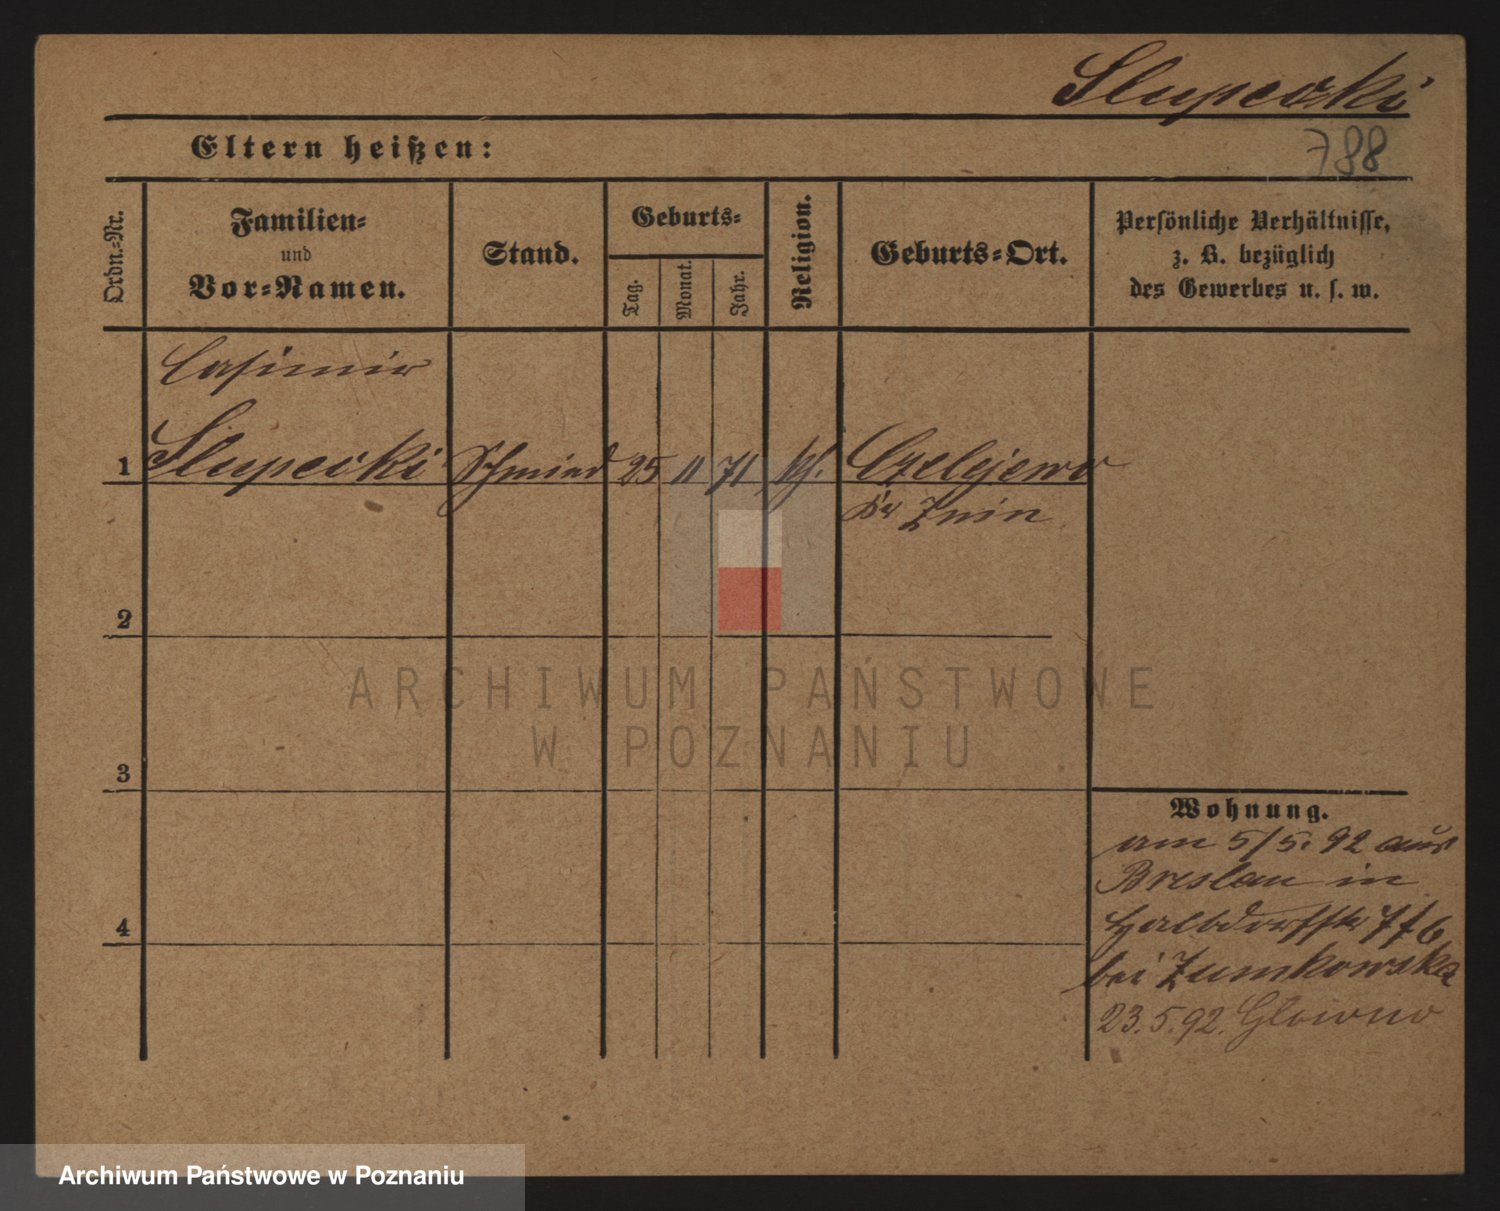 Slupecki
788
Eltern heißen:
Ordn.-Nr.
Familien-
und
Vor-Namen.
Stand.
Geburts-
Tag.
Monat.
Jahr.
Religion.
Geburts-Ort.
Persönliche Verhältnisse,
z. B. bezüglich
des Gewerbes u. s. w.
Casimir
1 Slupecki Schmied 25 11 71 kth. Czelejewo
Kr Znin
2
3
4
Wohnung.
am 5/5. 92 aus
Breslau in
Halbdorfstr
bei Zumkowska
23.5.92. Glowno
ARCHIWUM PAŃSTWOWE
W POZNANIU
Archiwum Państwowe w Poznaniu